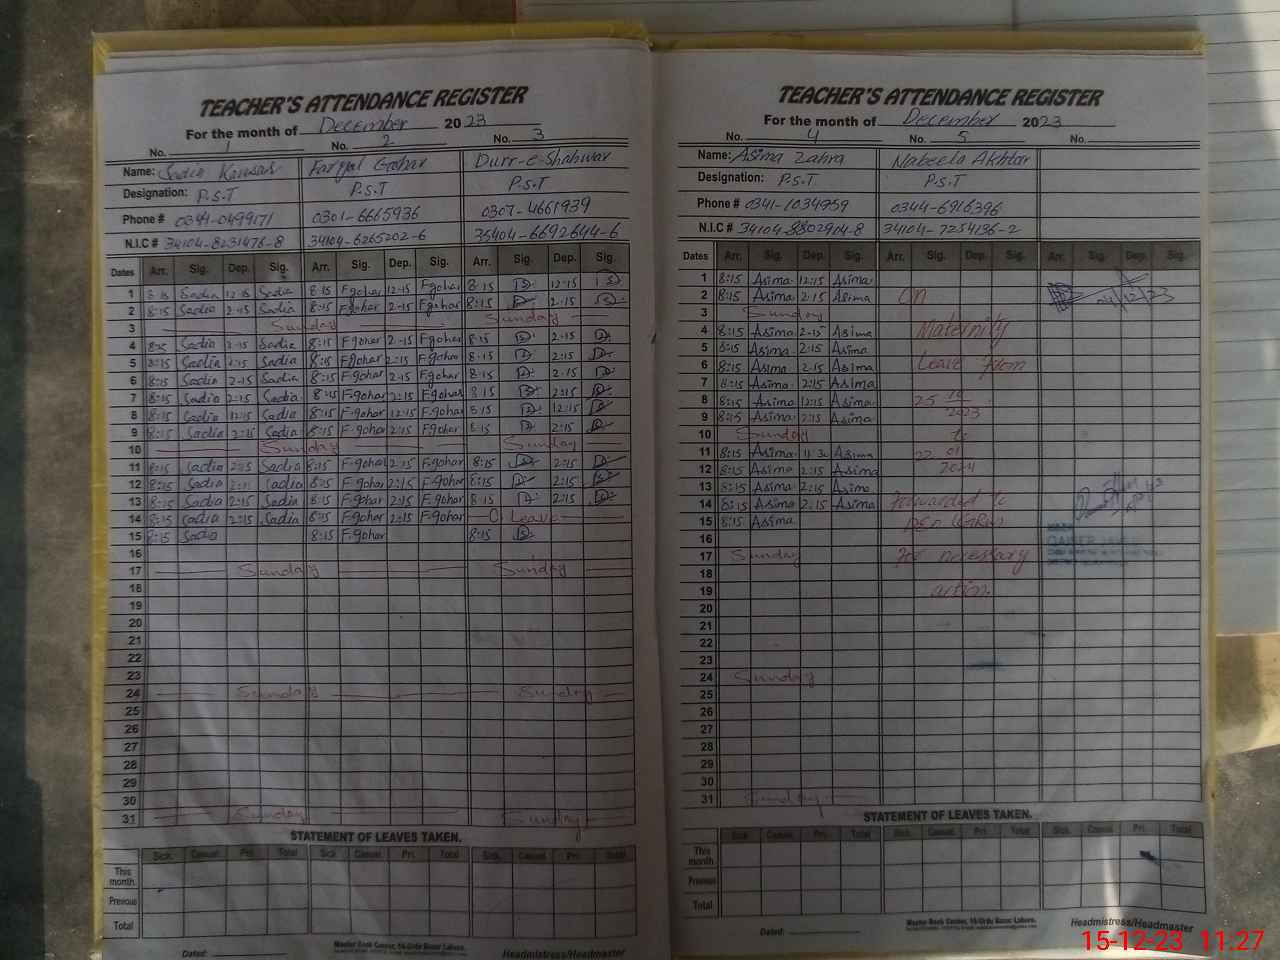 TEACHER'S ATTENDANCE REGISTER
For the month of December 2023
No. 1 No. 2 No. 3
Name: Sadia Kausar Faryal Gohar Durr-e-Shahwar
Designation: P.S.T P.S.T P.S.T
Phone # 0344-0499171 0301-6665936 0307-4661939
N.I.C # 34104-8231476-8 34104-6265202-6 35404-6692644-6
Dates Arr. Sig. Dep. Sig. Arr. Sig. Dep. Sig. Arr. Sig. Dep. Sig.
1 8:15 Sadia 12:15 Sadia 8:15 F.gohar 12:15 F.gohar 8:15 12:15
2 8:15 Sadia 2:15 Sadia 8:15 F.gohar 2:15 F.gohar 8:15 2:15
3 Sunday Sunday
4 8:15 Sadia 2:15 Sadia 8:15 F.gohar 2:15 F.gohar 8:15 2:15
5 8:15 Sadia 2:15 Sadia 8:15 F.gohar 2:15 F.gohar 8:15 2:15
6 8:15 Sadia 2:15 Sadia 8:15 F.gohar 2:15 F.gohar 8:15 2:15
7 8:15 Sadia 2:15 Sadia 8:15 F.gohar 2:15 F.gohar 8:15 2:15
8 8:15 Sadia 12:15 Sadia 8:15 F.gohar 12:15 F.gohar 8:15 12:15
9 8:15 Sadia 2:15 Sadia 8:15 F.gohar 2:15 F.gohar 8:15 2:15
10 Sunday Sunday
11 8:15 Sadia 2:15 Sadia 8:15 F.gohar 2:15 F.gohar 8:15 2:15
12 8:15 Sadia Sadia 8:15 F.gohar 2:15 F.gohar 8:15 2:15
13 8:15 Sadia 2:15 Sadia 8:15 F.gohar 2:15 F.gohar 8:15 2:15
14 8:15 Sadia 2:15 Sadia 8:15 F.gohar 2:15 F.gohar Leave
15 8:15 Sadia 8:15 F.gohar 8:15
16
17 Sunday Sunday
18
19
20
21
22
23
24 Sunday Sunday
25
26
27
28
29
30
31 Sunday Sunday
STATEMENT OF LEAVES TAKEN.
Sick. Casual. Pri. Total Sick Casual. Pri. Total Sick. Casual. Pri. Total
This month.
Previous
Total
Dated:
Master Book Center, 16-Urdu Bazar Lahore.
Headmistress/Headmaster
TEACHER'S ATTENDANCE REGISTER
For the month of December 2023
No. 4 No. 5 No.
Name: Asima Zahra Nabeela Akhtar
Designation: P.S.T P.S.T
Phone # 0341-1034959 0344-6916396
N.I.C # 34104-8802904-8 34104-7254136-2
Dates Arr. Sig. Dep. Sig. Arr. Sig. Dep. Sig. Arr. Sig. Dep. Sig.
1 8:15 Asima 12:15 Asima
2 8:15 Asima 2:15 Asima On 04/12/23
3 Sunday
4 8:15 Asima 2:15 Asima Maternity
5 8:15 Asima 2:15 Asima
6 8:15 Asima 2:15 Asima Leave from
7 8:15 Asima 2:15 Asima
8 8:15 Asima 12:15 Asima 25 10
9 8:15 Asima 2:15 Asima 2023
10 Sunday to
11 8:15 Asima 11:30 Asima 22 01
12 8:15 Asima 2:15 Asima 2024
13 8:15 Asima 2:15 Asima
14 8:15 Asima 2:15 Asima Forwarded to
15 8:15 Asima
16
17 Sunday For necessary
18
19 action.
20
21
22
23
24 Sunday
25
26
27
28
29
30
31 Sunday
STATEMENT OF LEAVES TAKEN.
Sick Casual. Pri. Total Sick. Casual. Pri. Total Sick. Casual. Pri. Total
This month.
Previous
Total
Dated:
Master Book Center, 16-Urdu Bazar Lahore.
Headmistress/Headmaster
15-12-23 11:27